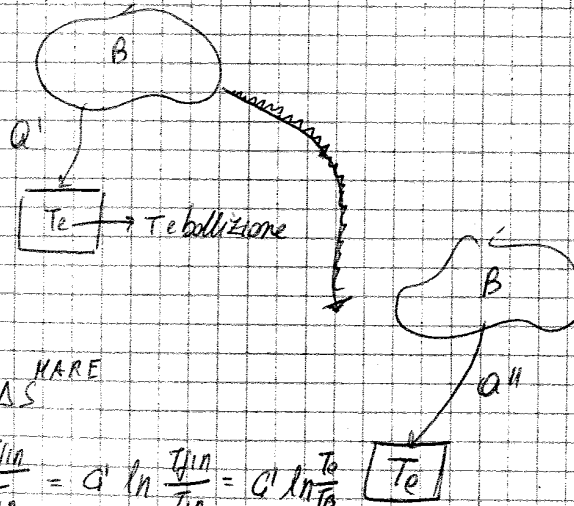 B
Q'
Te → T ebollizione
B
Q''
ΔS MARE
= C' ln Tfin/Tin = C' ln Te/TB
Te